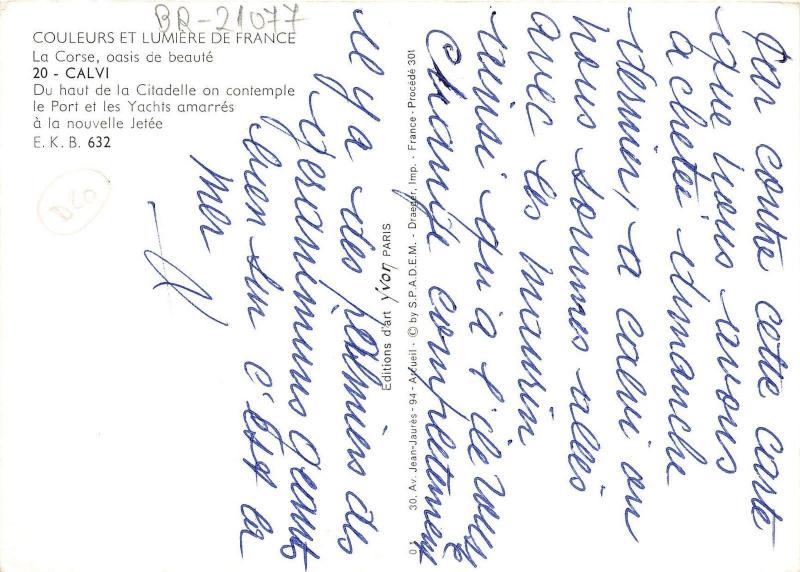 BR-21077
COULEURS ET LUMIÈRE DE FRANCE
La Corse, oasis de beauté
20 - CALVI
Du haut de la Citadelle on contemple
le Port et les Yachts amarrés
à la nouvelle Jetée
E. K. B. 632
D20
Editions d'art yvon PARIS
0 1 30, Av. Jean-Jaurès - 94 - Arcueil - © by S.P.A.D.E.M. - Draeger, Imp. - France - Procédé 301
par contre cette carte
que nous avons
acheteé dimanche
dernier, a calvi ou
nous sommes allés
avec les maurin
ainsi qu'a l'ile Rousse
Change completement
il y a des palmiers des
geranimums geants
bien sur c'est la
mer